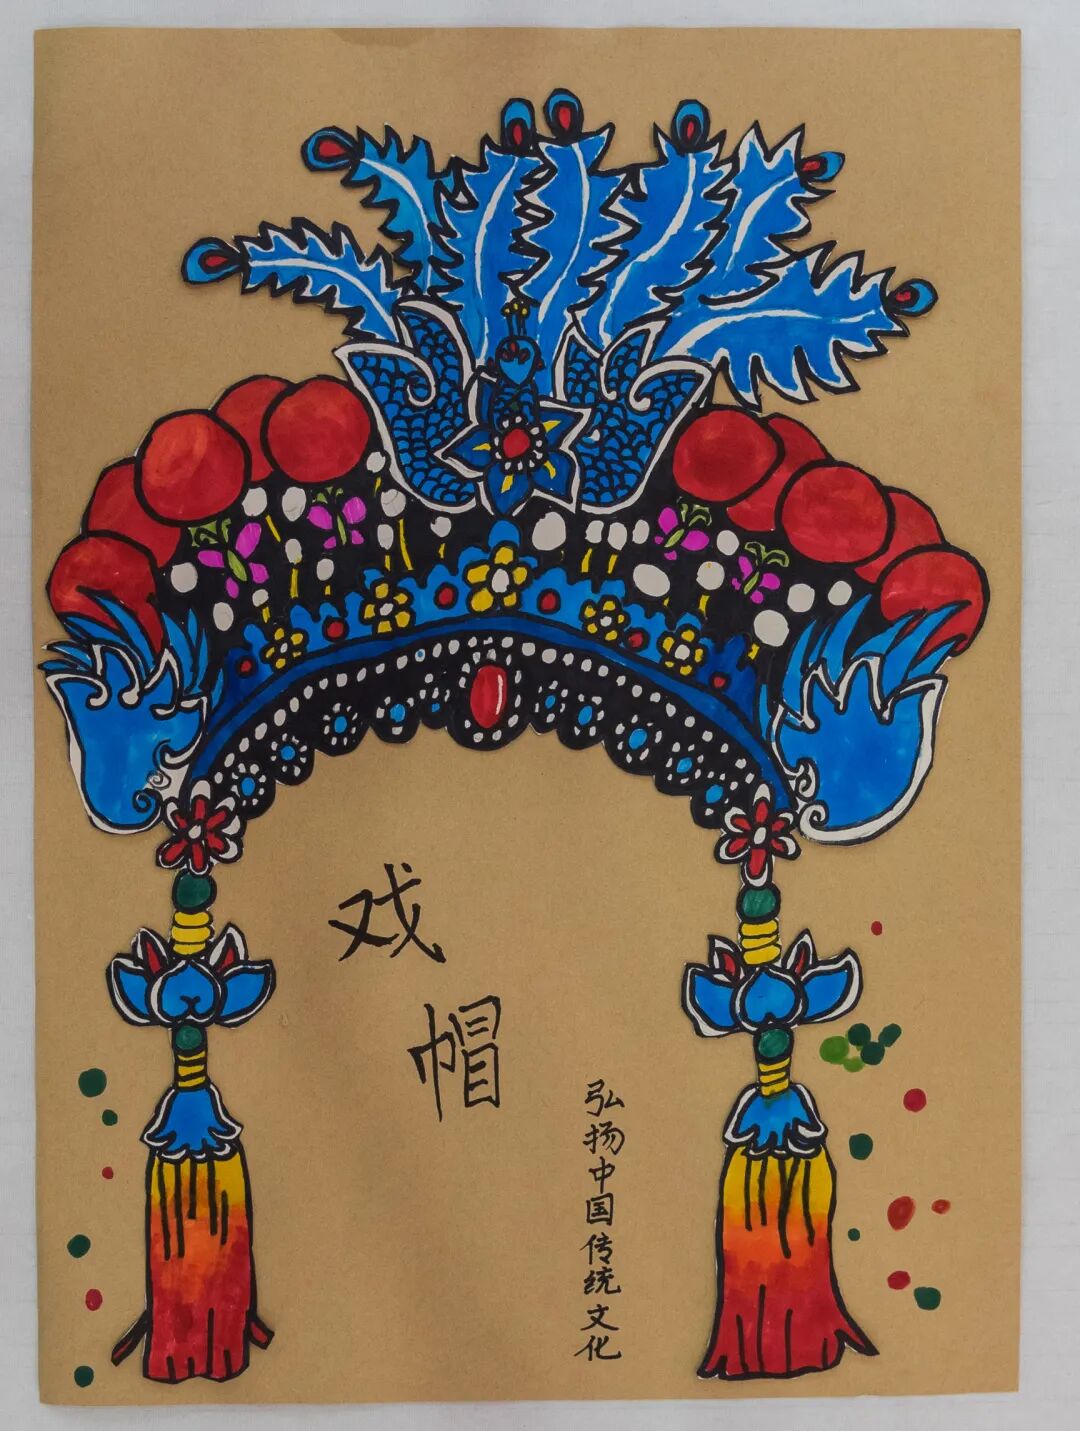 戏帽
弘扬中国传统文化